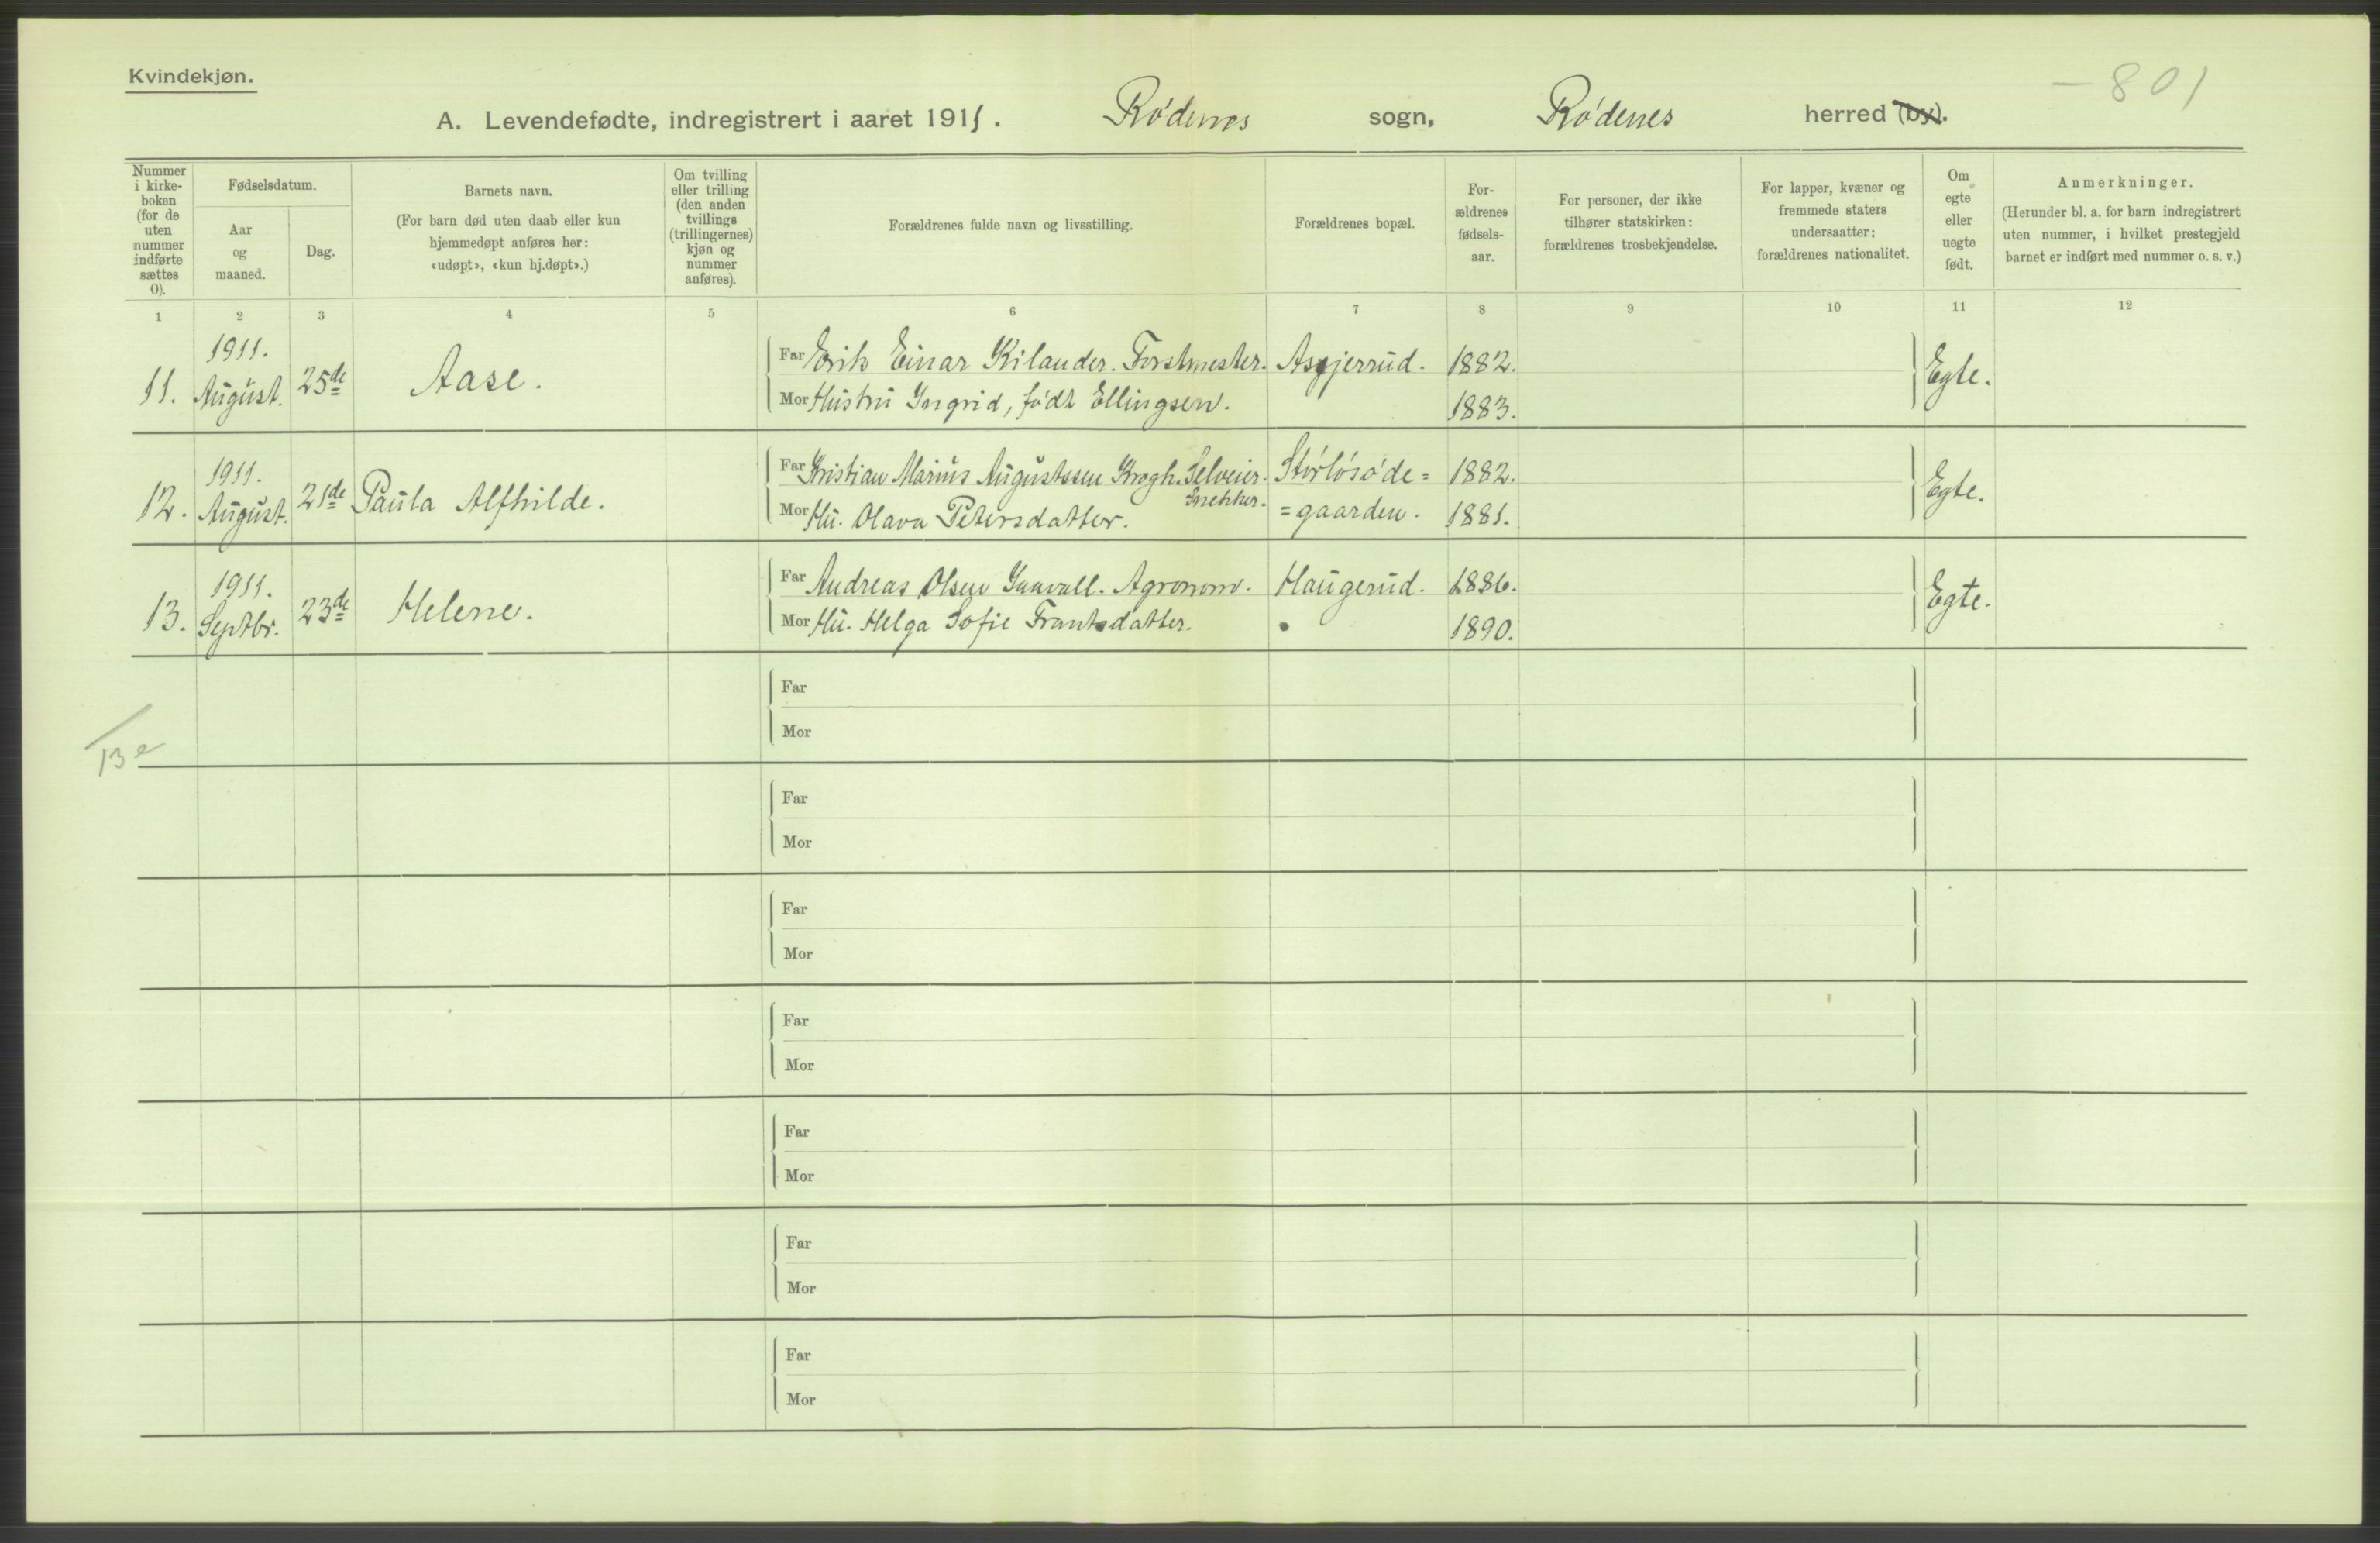 Kvindekjøn.
— 801
A. Levendefødte, indregistrert i aaret 1911. Rødenes sogn, Rødenes herred (by).
Nummer i kirke-boken (for de uten nummer indførte sættes 0).
Fødselsdatum.
Aar og maaned.
Dag.
Barnets navn.
(For barn død uten daab eller kun hjemmedøpt anføres her: «udøpt», «kun hj.døpt».)
Om tvilling eller trilling (den anden tvillings (trillingernes) kjøn og nummer anføres).
Forældrenes fulde navn og livsstilling.
Forældrenes bopæl.
For-ældrenes fødsels-aar.
For personer, der ikke tilhører statskirken: forældrenes trosbekjendelse.
For lapper, kvæner og fremmede staters undersaatter: forældrenes nationalitet.
Om egte eller uegte født.
Anmerkninger.
(Herunder bl. a. for barn indregistrert uten nummer, i hvilket prestegjeld barnet er indført med nummer o. s. v.)
1 2 3 4 5 6 7 8 9 10 11 12
11. 1911. August. 25de Aase. Far Erik Einar Kilander. Forstmester. Asgjerrud. 1882. Egte.
Mor Hustru Ingrid, født Ellingsen. 1883.
12. 1911. August. 21de Paula Alfhilde. Far Kristian Marius Augustssen Krogh. Selveier. Snekker. Störlösöde= 1882. Egte.
Mor Hu. Olava Petersdatter. =gaarden. 1881.
13. 1911. Septbr. 23de Helene. Far Andreas Olsen Agronom. Haugerud. 1886. Egte.
Mor Hu. Helga Sofie Frantsdatter. 1890.
Far
Mor
13 e
Far
Mor
Far
Mor
Far
Mor
Far
Mor
Far
Mor
Far
Mor